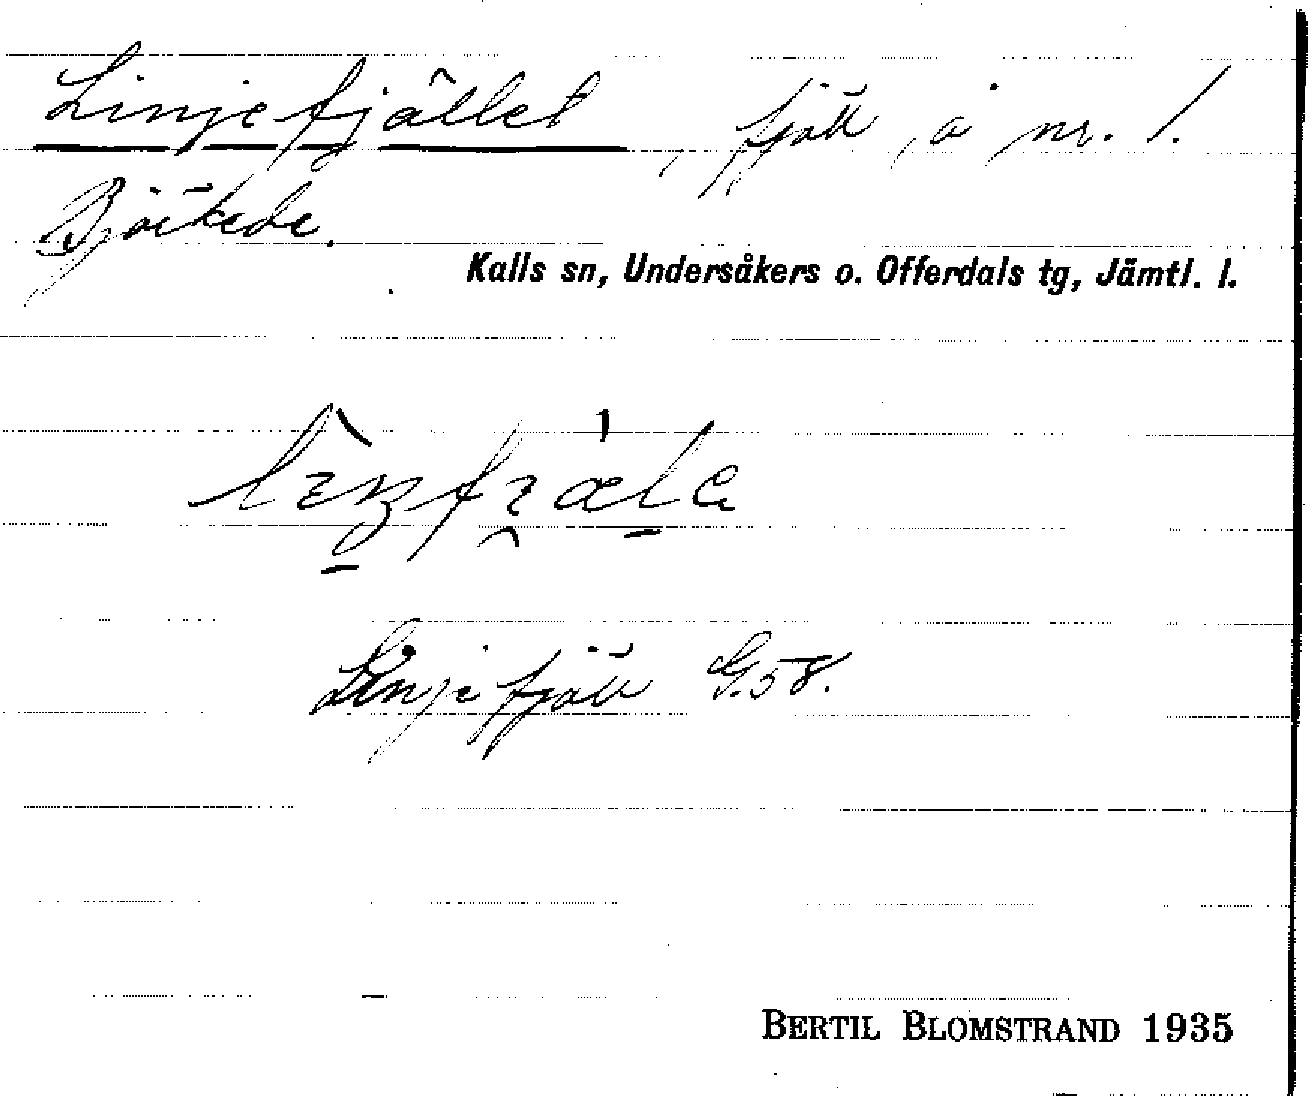 Linjefjället, fjäll, å nr. 1.
Björkede.
Kalls sn, Undersåkers o. Offerdals tg, Jämtl. l.
Linjefjäll G.58.
BERTIL BLOMSTRAND 1935